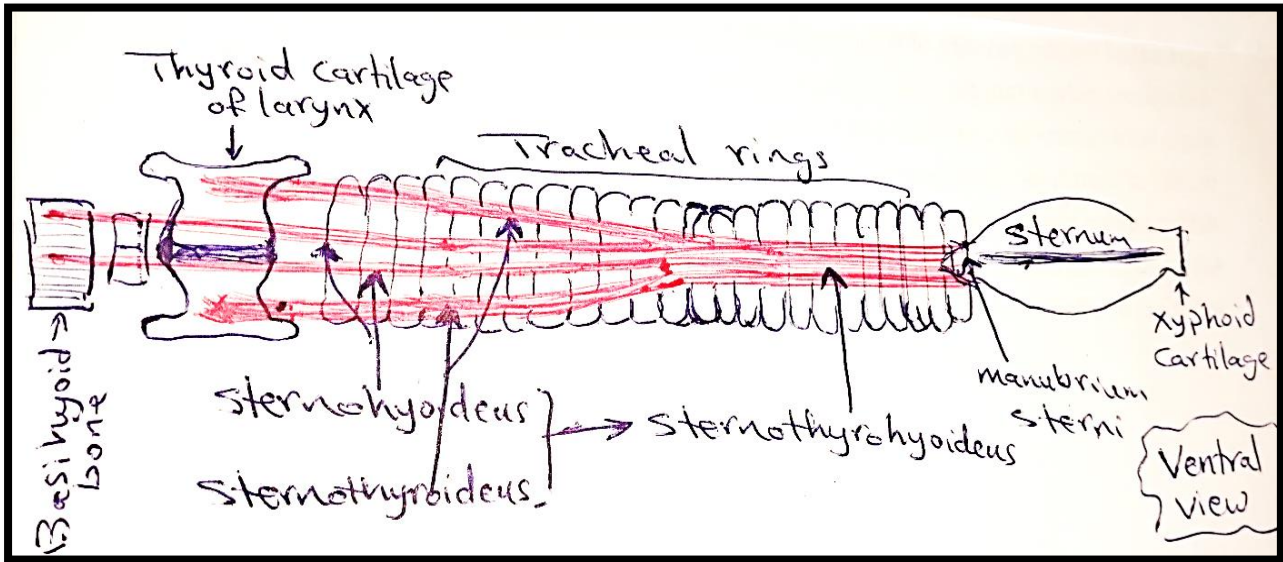 Thyroid cartilage
of larynx
Tracheal rings
Sternum
Xyphoid
Cartilage
manubrium
sterni
Basihyoid
bone
Sternohyoideus
Sternothyroideus
Sternothyrohyoideus
Ventral
view